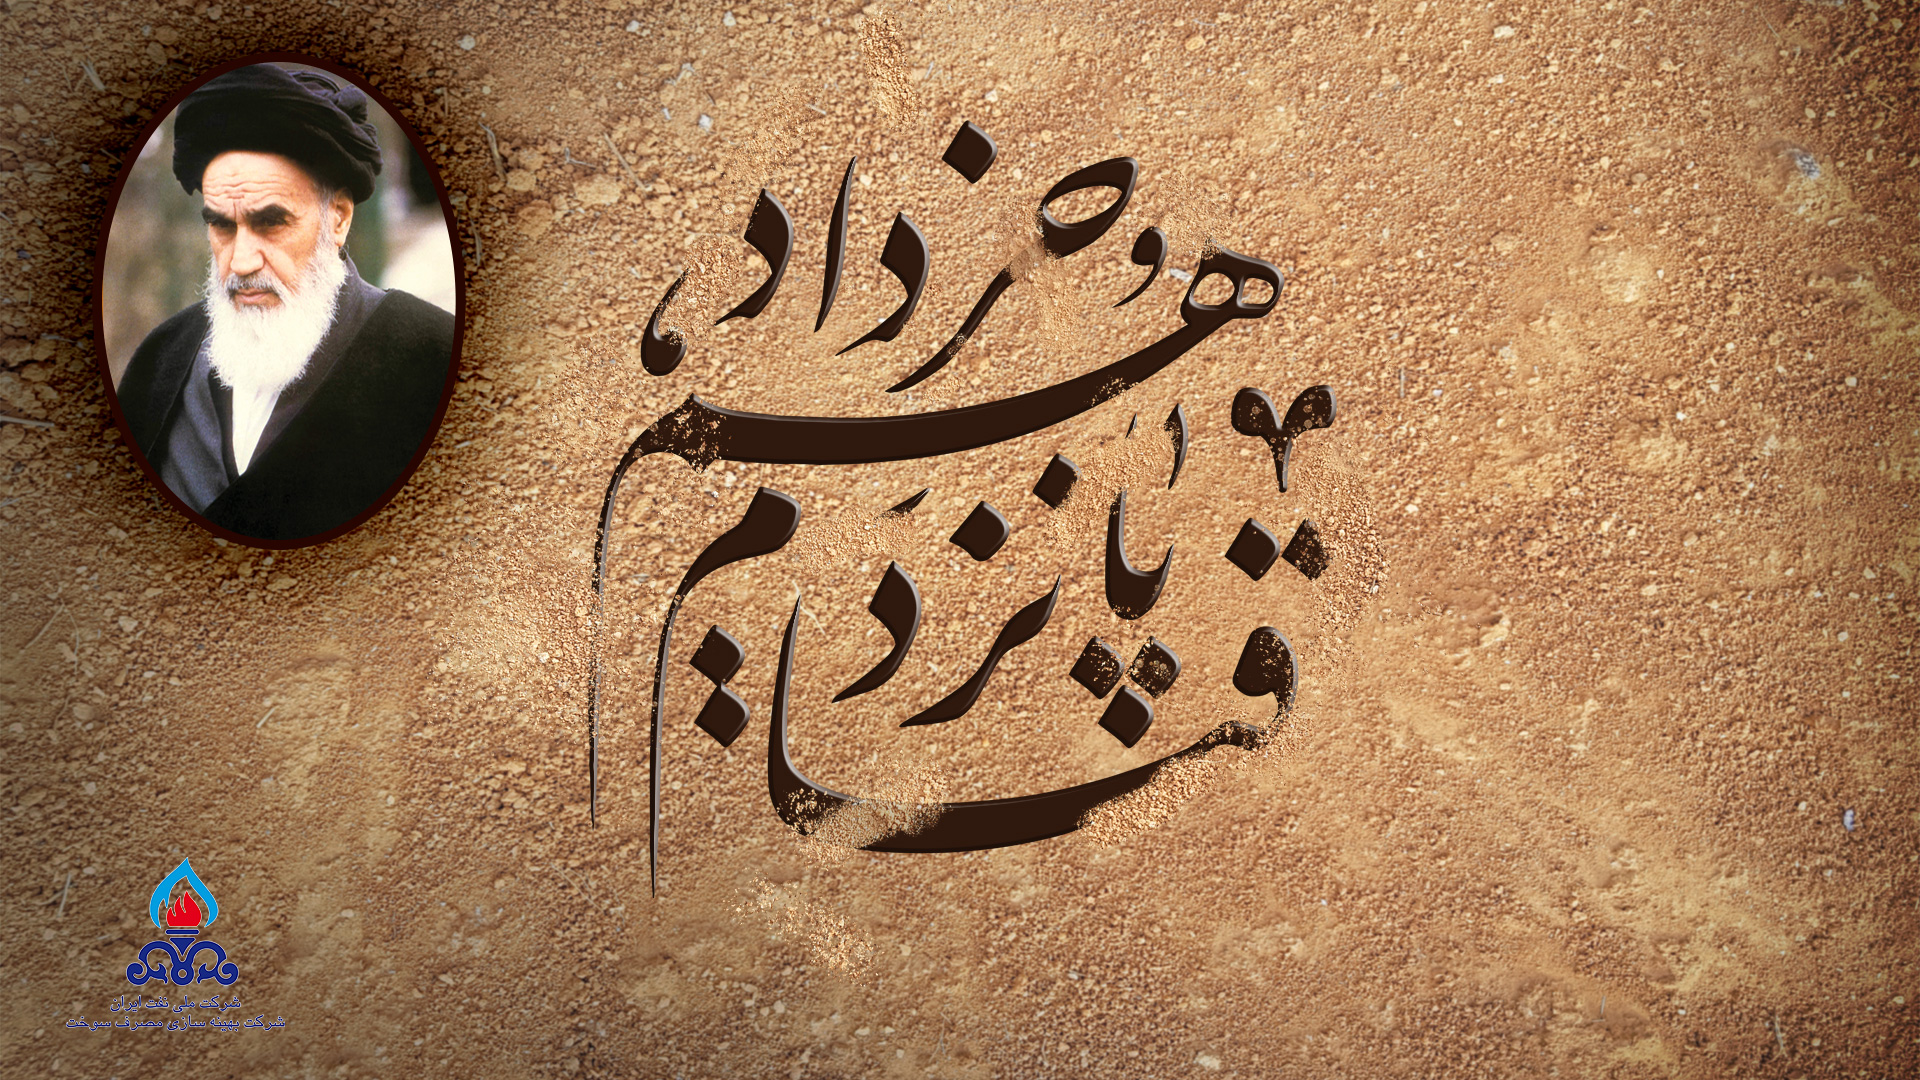 قیام پانزدهم خرداد
شرکت ملی نفت ایران
شرکت بهینه سازی مصرف سوخت